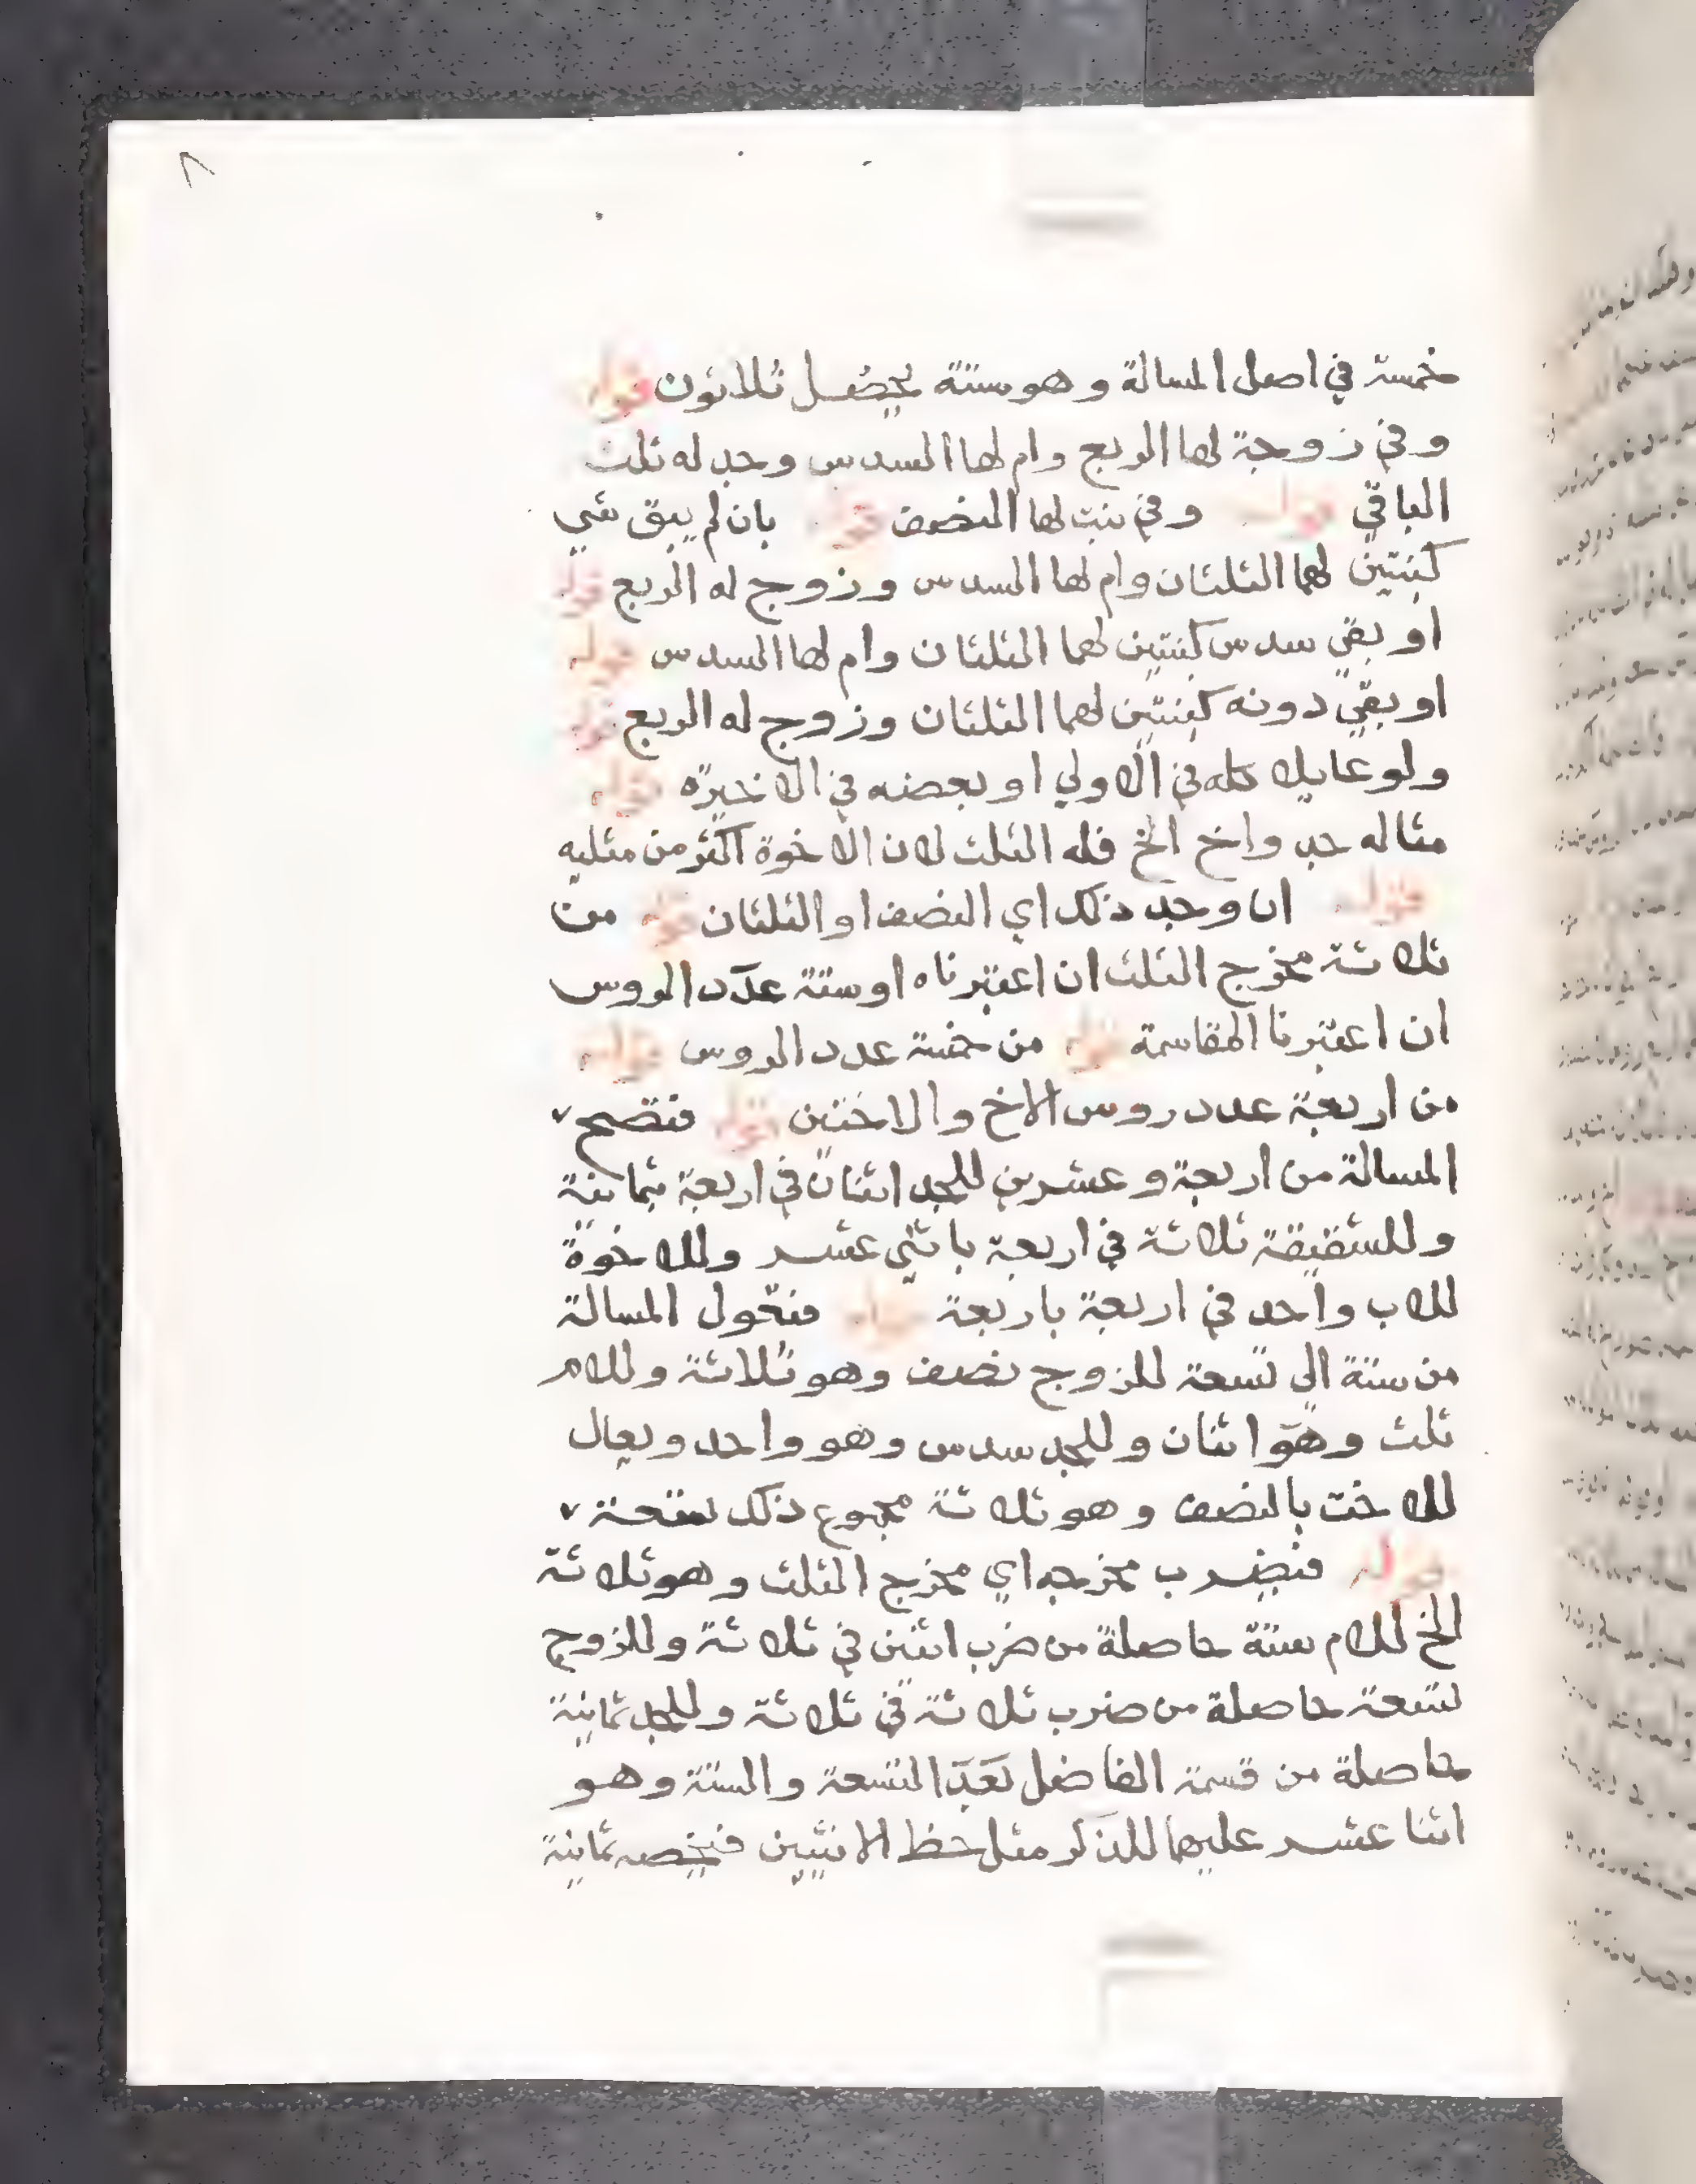 ٨
خمسة في اصل المسالة وهو ستة يحصل ثلاثون قوله
وفي زوجة لها الربع وام لها السدس وجد له ثلث
الباقي قوله وفي بنت لها النصف قوله بان لم يبق شي
كبنتين لهما الثلثان وام لها السدس وزوج له الربع قوله
او بقي سدس كبنتين لهما الثلثان وام لها السدس قوله
او بقي دونه كبنتين لهما الثلثان وزوج له الربع قوله
ولو عايلا كله في الاولي او بعضه في الاخيرة قوله
مثاله جد واخ الخ فله الثلث لان الاخوة اكثر من مثليه
قوله ان وجد ذلك اي النصف او الثلثان قوله من
ثلاثة مخرج الثلث ان اعتبرناه او ستة عدد الروس
ان اعتبرنا المقاسمة قوله من خمسة عدد الروس قوله
من اربعة عدد روس الاخ والاختين قوله فتصح
المسالة من اربعة وعشرين للجد اثنان في اربعة بثمانية
وللشقيقة ثلاثة في اربعة باثني عشر وللاخوة
للاب واحد في اربعة باربعة قوله فتعول المسالة
من ستة الي تسعة للزوج نصف وهو ثلاثة وللام
ثلث وهو اثنان وللجد سدس وهو واحد ويعال
للاخت بالنصف وهو ثلاثة مجموع ذلك تسعة
قوله فتضرب مخرجه اي مخرج الثلث وهو ثلاثة
الخ للام ستة حاصلة من ضرب اثنين في ثلاثة وللزوج
تسعة حاصلة من ضرب ثلاثة في ثلاثة وللجد ثمانية
حاصلة من قسمة الفاضل بعد التسعة والستة وهو
اثنا عشر عليهما للذكر مثل حظ الانثيين فيخصه ثمانية